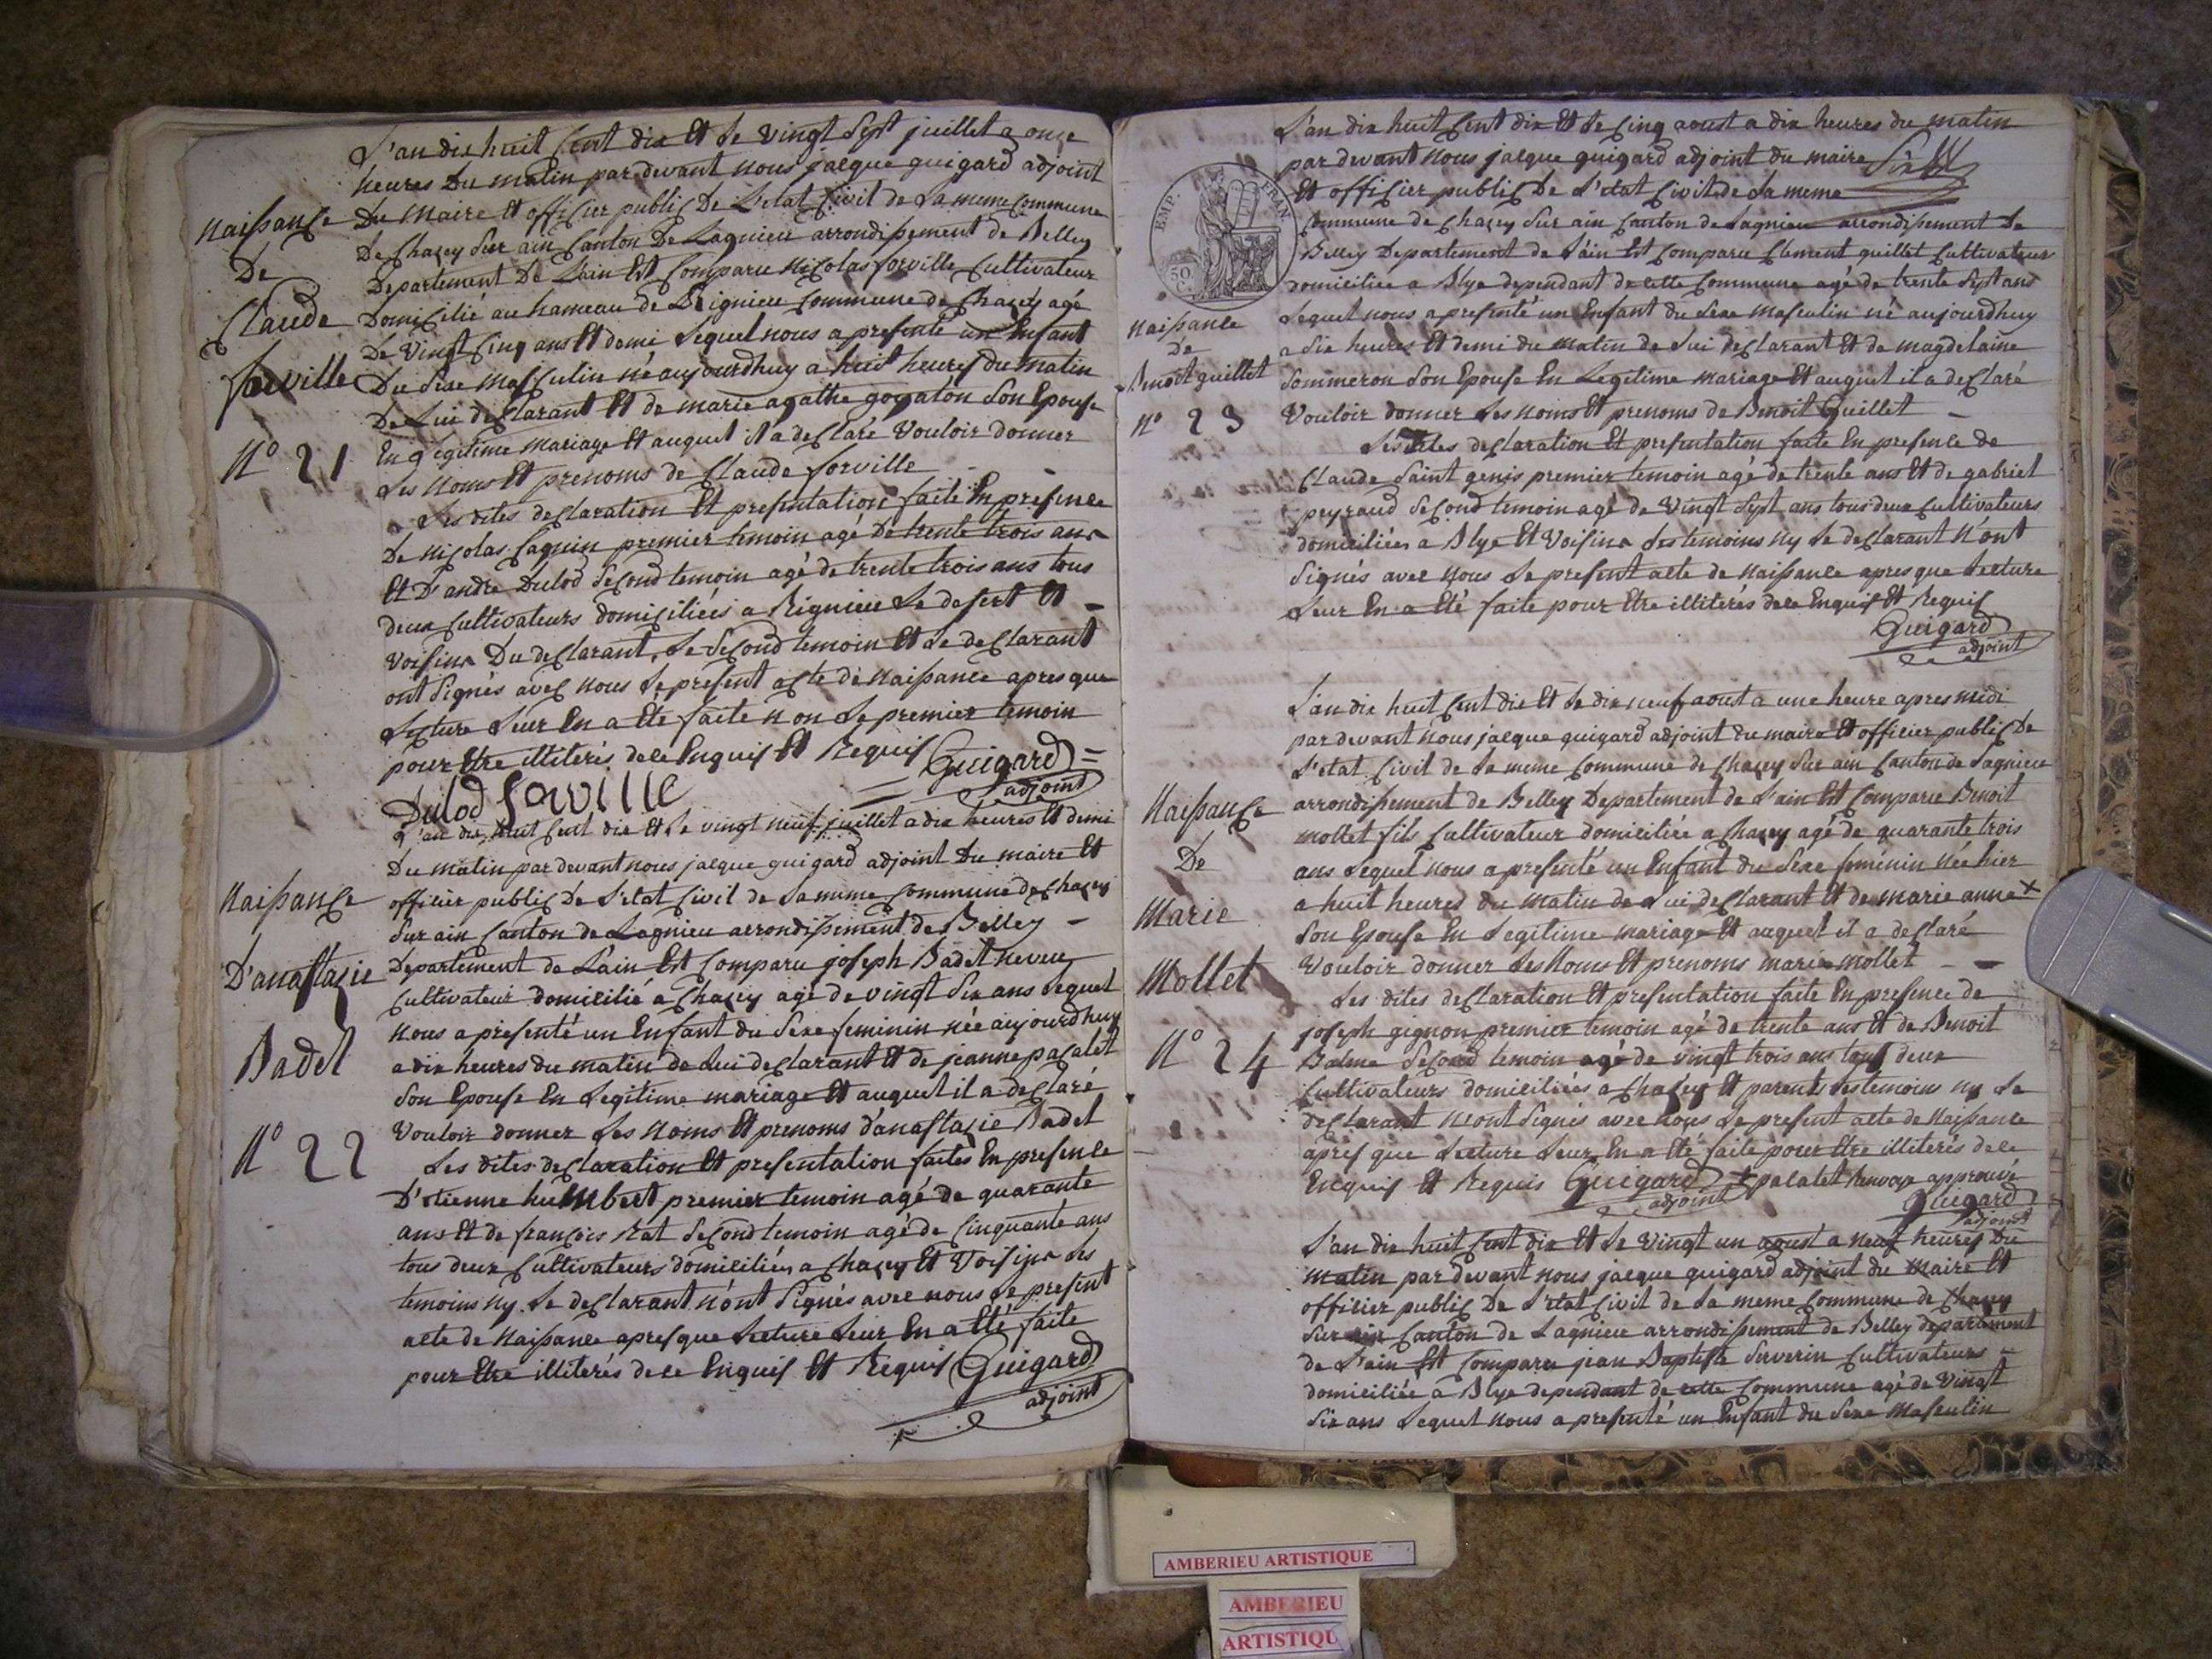 L'an dix huit Cent dix Et Le vingt Sept juillet a onze
heures Du matin par devant nous jacque guigard adjoint
Du Maire Et officier public De L'etat Civil de La meme Commune
De Chazey Sur ain Canton De Lagnieu arrondissement de Belley
Departement De Lain Est Comparu Nicolas forville Cultivateur
Domicilié au hameau de Rignieu Commune de Chazey agé
De Vingt Cinq ans Et demi Lequel nous a presenté un Enfant
Du Sexe Masculin né aujourdhuy a huit heures du matin
De Lui declarant Et de marie agathe goyaton Son Epouse
En Legitime mariage Et auquel il a declaré Vouloir donner
Les Noms Et prenoms de Claude forville
Les dites declaration Et presentation faite En presence
De nicolas Cagnin premier temoin agé De trente trois ans
Et D'andre Dulod Second temoin agé de trente trois ans tous
deux Cultivateurs domiciliées a Rignieu Le desert Et
Voisins Du declarant, Le Second temoin Et Le declarant
ont Signés avec nous Le present acte de Naissance apres que
Lecture Leur En a Eté faite non Le premier temoin
pour Etre illiterés de ce Enquis Et Requis Guigard
adjoint
Dulod forville
Naissance
De
Claude
forville
N° 21
L'an dix huit Cent dix Et Le vingt neuf juillet a dix heures Et demi
Du matin par devant nous jacque guigard adjoint Du maire Et
officier public De L'etat Civil de La meme Commune de Chazey
Sur ain Canton de Lagnieu arrondissement de Belley
Departement de Lain Est Comparu joseph Badet neveu
Cultivateur domicilié a Chazey agé de vingt Six ans Lequel
nous a presenté un Enfant du Sexe feminin née aujourdhuy
a dix heures du matin de Lui declarant Et de jeanne pacalet
Son Epouse En Legitime mariage Et auquel il a declaré
Vouloir donner Les Noms Et prenoms d'anastazie Badet
Les dites declaration Et presentation faites En presence
D'etienne humbert premier temoin agé de quarante
ans Et de françois Rat Second temoin agé de Cinquante ans
tous deux Cultivateurs domiciliés a Chazey Et Voisins Les
temoins ny Le declarant n'ont Signés avec nous Le present
acte de Naissance apres que Lecture Leur En a Eté faite
pour Etre illiterés de ce Enquis Et Requis Guigard
adjoint
Naissance
D'anastazie
Badet
N° 22
L'an dix huit Cent dix Et Le Cinq aoust a dix heures du matin
par devant nous jacque guigard adjoint du maire
Et officier public De L'etat Civil de La meme
Commune de Chazey Sur ain Canton de Lagnieu arrondissement de
Belley Departement de L'ain Est Comparu Clement guillet Cultivateur
domiciliée a Blye dependant de cette Commune agé de trente Sept ans
Lequel nous a presenté un Enfant du Sexe masculin né aujourdhuy
a Six heures Et demi du matin de Lui declarant Et de magdelaine
Sommeron Son Epouse En Legitime mariage Et auquel il a declaré
Vouloir donner Les noms Et prenoms de Benoit Guillet
Les dites declaration Et presentation faite En presence de
Claude Saint genis premier temoin agé de trente ans Et de gabriel
peyraud Second temoin agé de Vingt Sept ans tous deux Cultivateurs
domiciliées a Blye Et Voisins Les temoins ny Le declarant N'ont
Signés avec nous Le present acte de Naissance apres que Lecture
Leur En a Eté faite pour Etre illiterés de ce Enquis Et Requis
Guigard
adjoint
EMP. FRAN.
50
C.
Naissance
De
Benoit guillet
N° 23
L'an dix huit Cent dix Et Le dix neuf aoust a une heure apres midi
par devant nous jacque guigard adjoint du maire Et officier public De
L'etat Civil de La meme Commune de Chazey Sur ain Canton de Lagnieu
arrondissement de Belley Departement de L'ain Est Comparu Benoit
mollet fils Cultivateur domiciliée a Chazey agé de quarante trois
ans Lequel nous a presenté un Enfant du Sexe feminin Née hier
a huit heures du matin de Lui declarant Et de marie anne +
Son Epouse En Legitime mariage Et auquel il a declaré
Vouloir donner Les Noms Et prenoms marie mollet
Les dites declaration Et presentation faite En presence de
joseph gignon premier temoin agé de trente ans Et de Benoit
Balme Second temoin agé de vingt trois ans tous deux
Cultivateurs domiciliées a Chazey Et parents Les temoins ny Le
declarant N'ont Signés avec nous Le present acte de Naissance
apres que Lecture Leur En a Eté faite pour Etre illiterés de ce
Enquis Et Requis Guigard + palatet Renvoye approuvé
adjoint Guigard
adjoint
Naissance
De
Marie
Mollet
N° 24
L'an dix huit Cent dix Et Le Vingt un aoust a neuf heures Du
matin par devant nous jacque guigard adjoint du Maire Et
officier public De L'etat Civil de La meme Commune de Chazey
Sur ain Canton de Lagnieu arrondissement de Belley departement
de L'ain Est Comparu jean Baptiste Severin Cultivateurs
domiciliée a Blye dependant de cette Commune agé de Vingt
Six ans Lequel nous a presenté un Enfant du Sexe Masculin
AMBERIEU ARTISTIQUE
AMBERIEU
ARTISTIQU